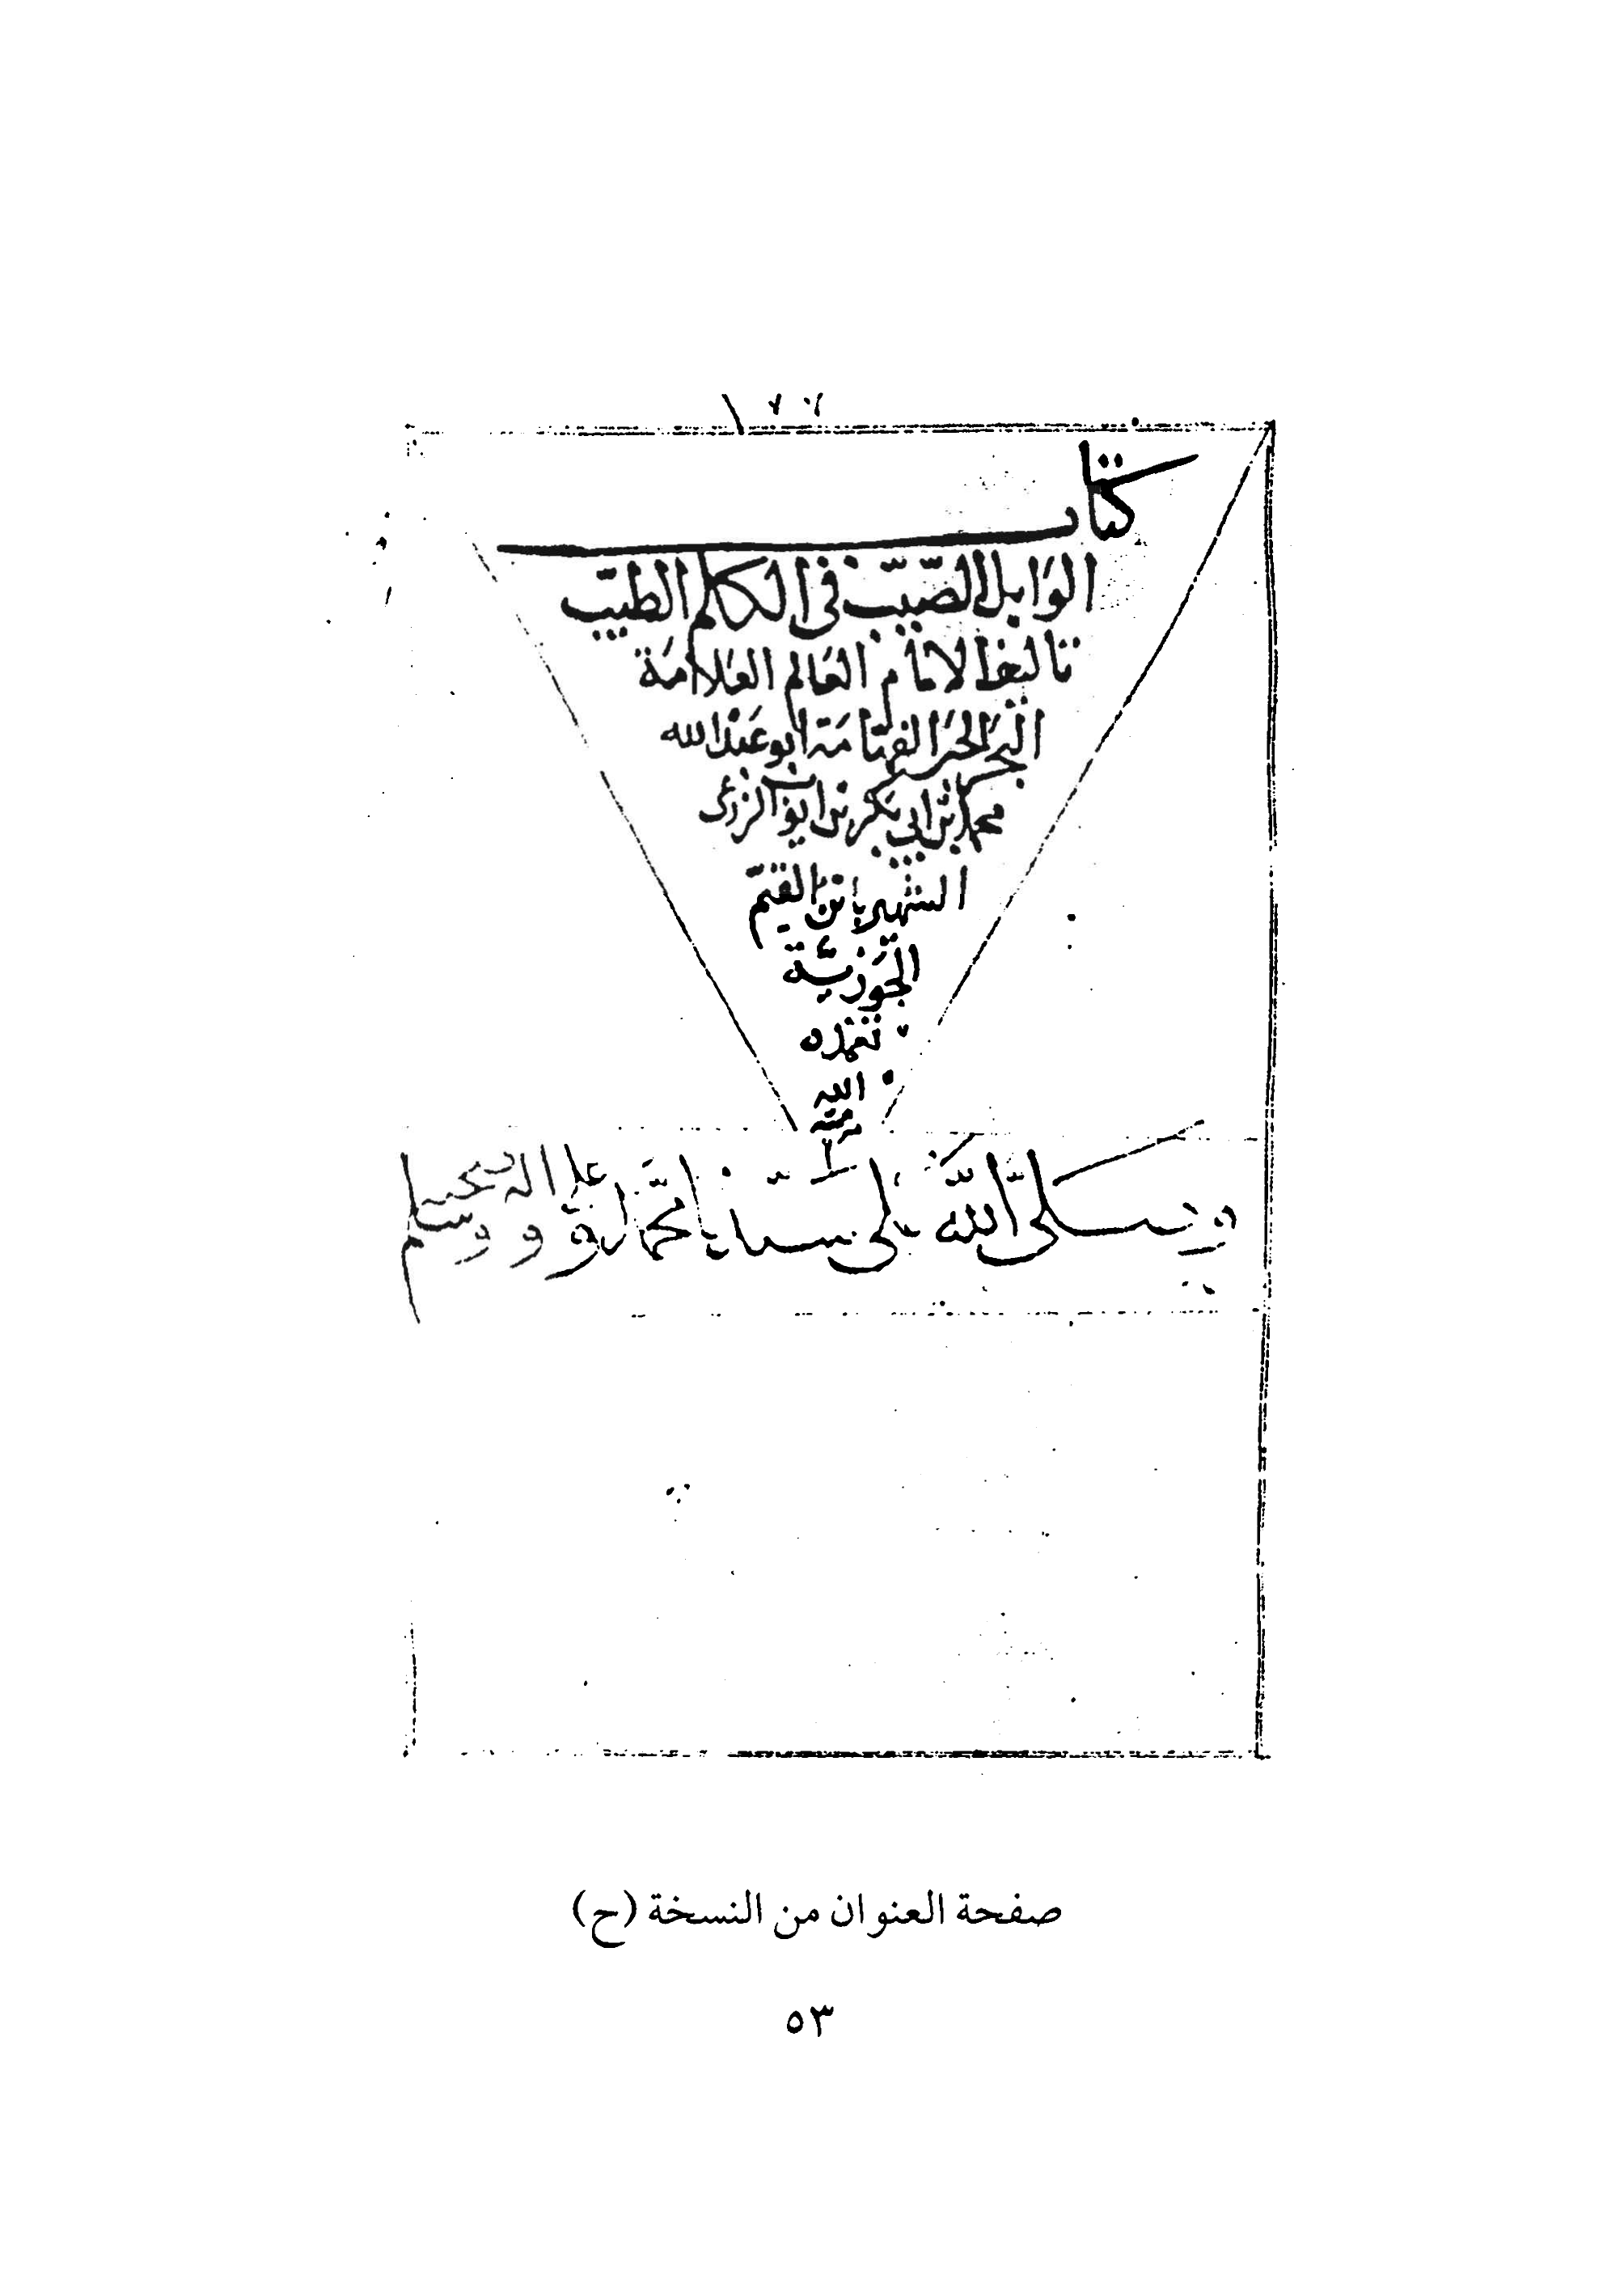 كتاب
الوابل الصّيّب في الكلم الطيّب
تاليف الامام العالم العلامة
البحر الحبر الفهامة ابو عبد الله
محمد بن ابي بكر بن ايوب الزرعى
الشهير بابن القيّم
الجوزيّة
تغمده
الله
برحمته
وصلى الله على سيدنا محمد وعلى اله وصحبه وسلم
صفحة العنوان من النسخة (ح)
٥٣